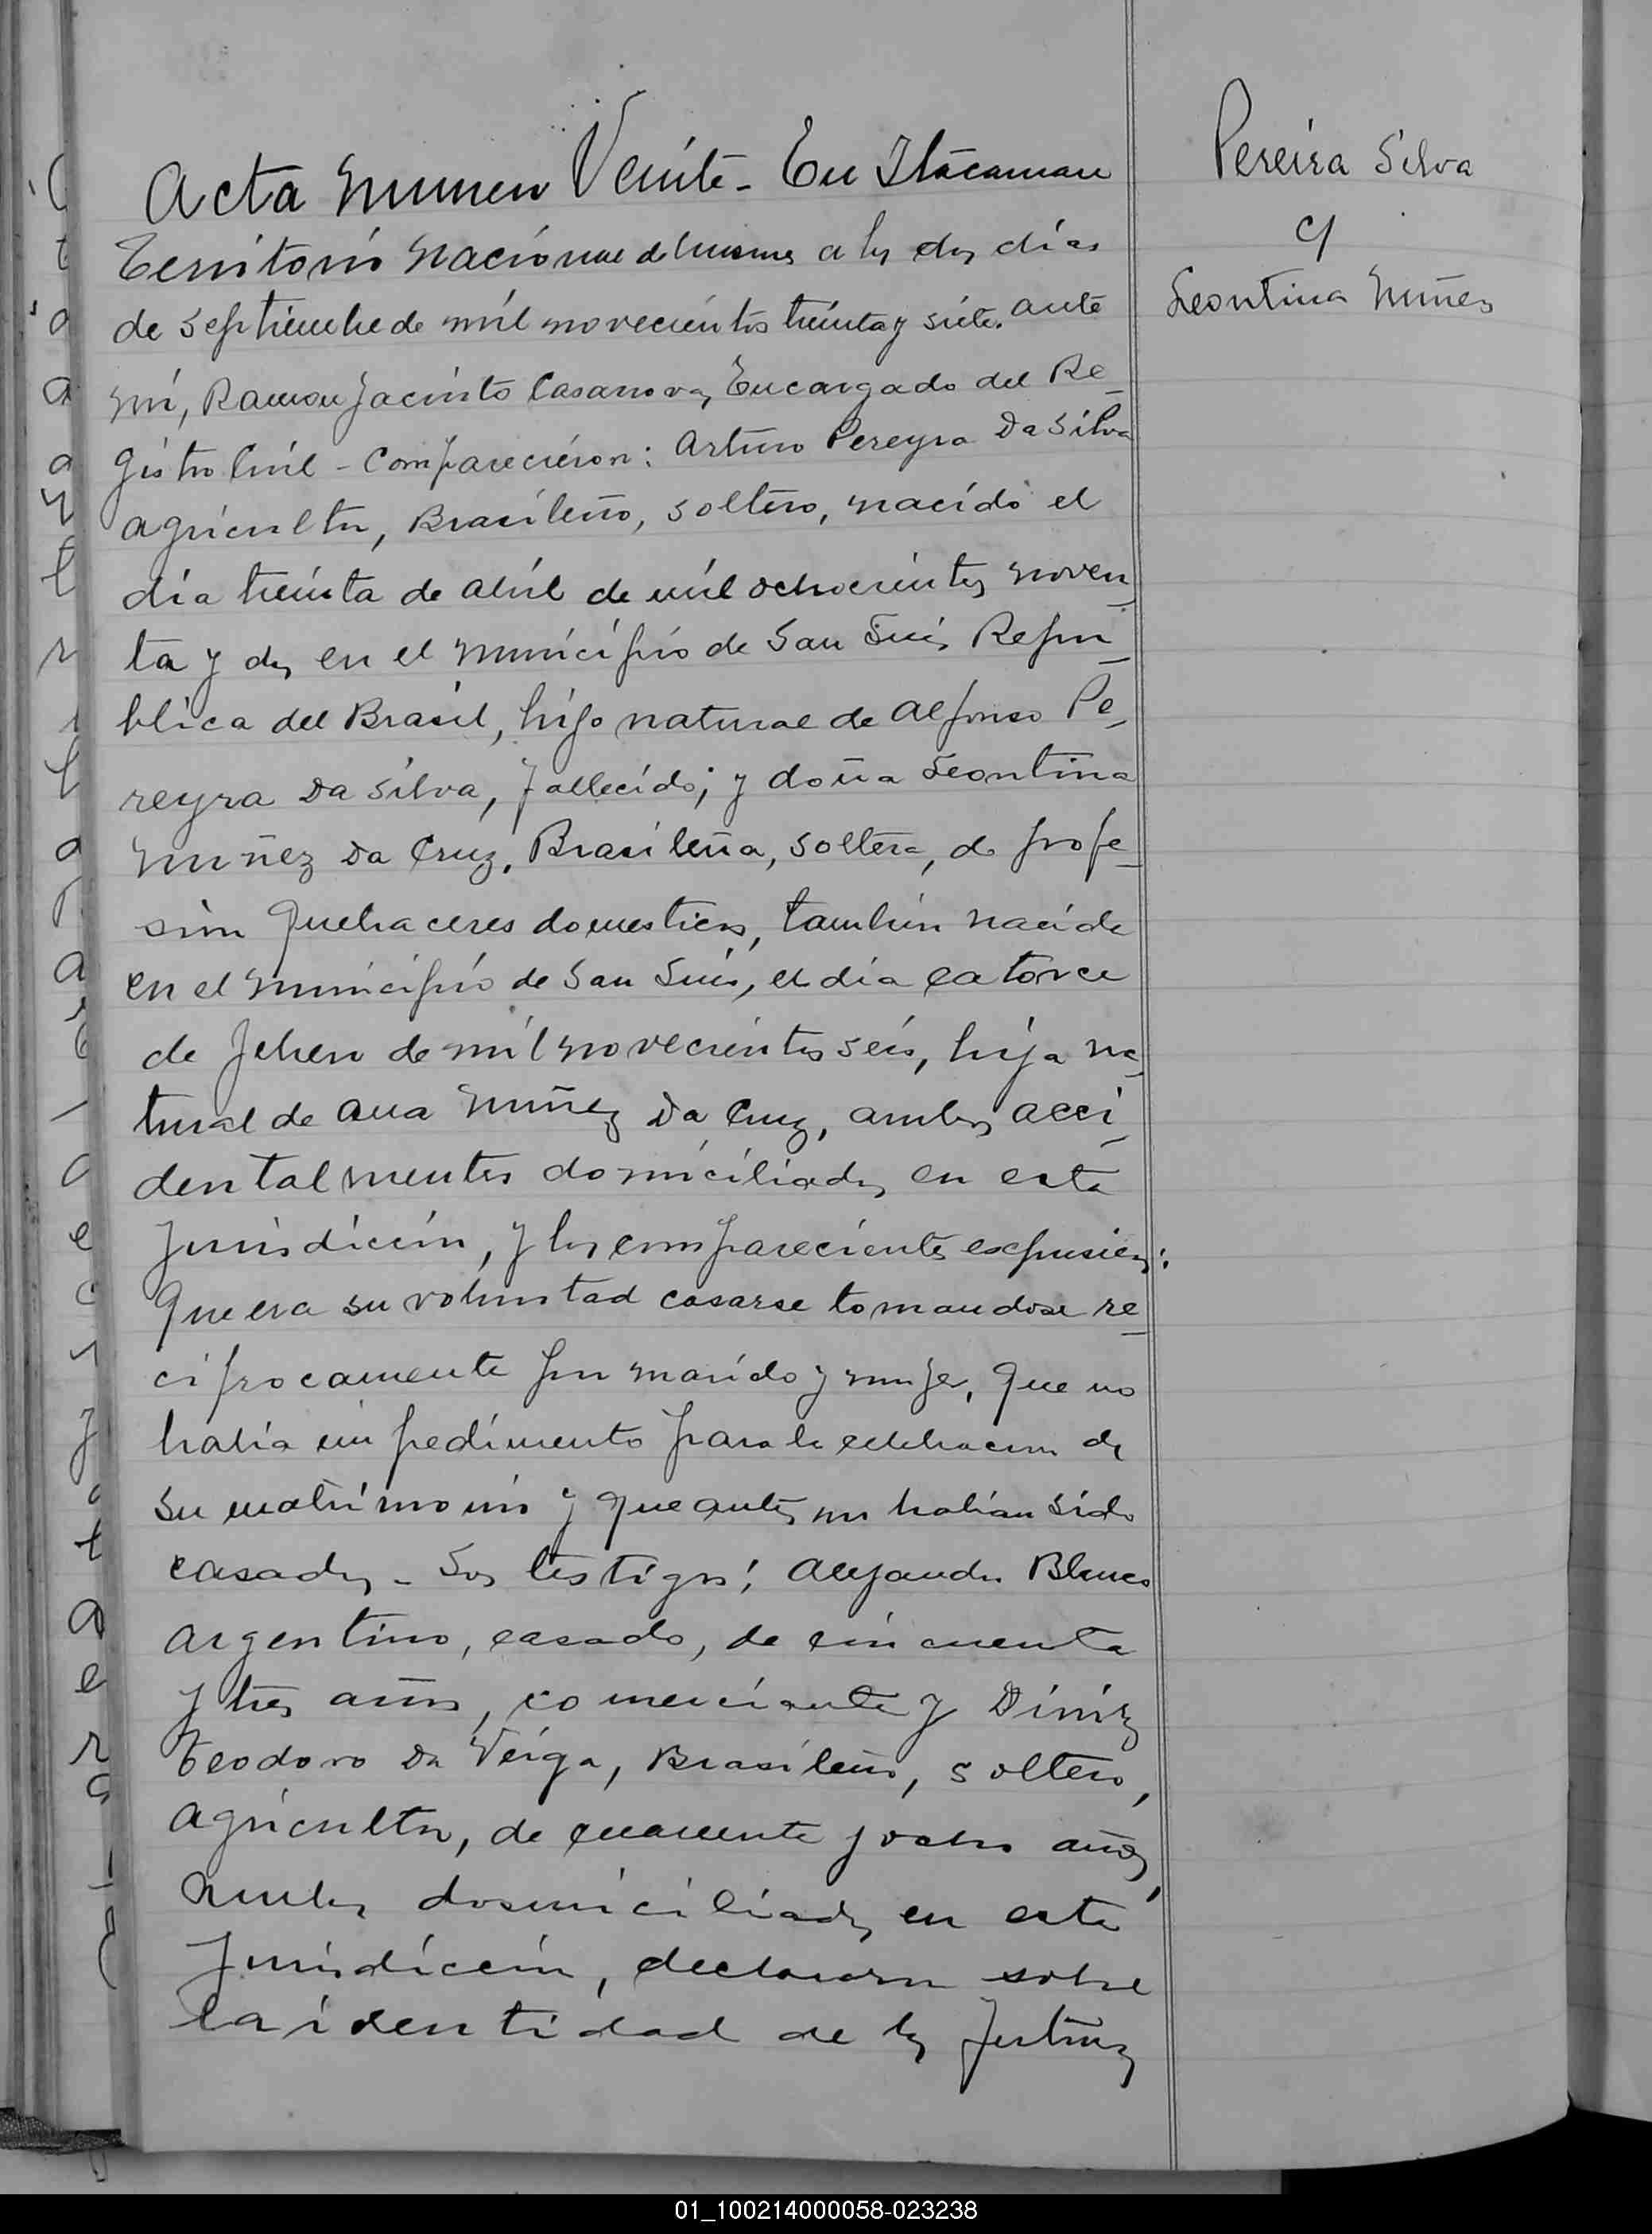 Pereira Silva
c/
Leontina Nuñez
Acta numero Veinte - En Itacaruare
Territorio Nacional de Misiones a los dos dias
de Septiembre de mil novecientos treinta y siete. ante
mi, Ramon Jacinto Casanova, Encargado del Re_
gistro Civil - Comparecieron: Arturo Pereyra Da Silva
agricultor, Brasileño, soltero, nacido el
día treinta de abril de mil ochocientos noven_
ta y dos en el municipio de San Luis Repu_
blica del Brasil, hijo natural de Alfonso Pe_
reyra Da Silva, fallecido; y doña Leontina
Nuñez Da Cruz, Brasileña, soltera, de profe_
sion Quehaceres domesticos, tambien nacida
en el municipio de San Luis, el dia catorce
de febrero de mil novecientos seis, hija na_
tural de Ana Nuñez Da Cruz, ambos acci_
dentalmentes domiciliados en esta
jurisdiccion, y los comparecientes expusieron:
Que era su voluntad casarse tomandose re_
ciprocamente por marido y mujer, que no
habia impedimento para la celebracion de
su matrimonio y que antes no habian sido
casados - Los testigos: Alejandro Blanco
Argentino, casado, de cincuenta
y tres años, comerciante y Diniz
Teodoro Da Veiga, Brasileño, soltero,
agricultor, de cuarenta y ocho años,
Ambos dosmiciliados en esta
Jurisdiccion, declararon sobre
la identidad de los
01_100214000058-023238